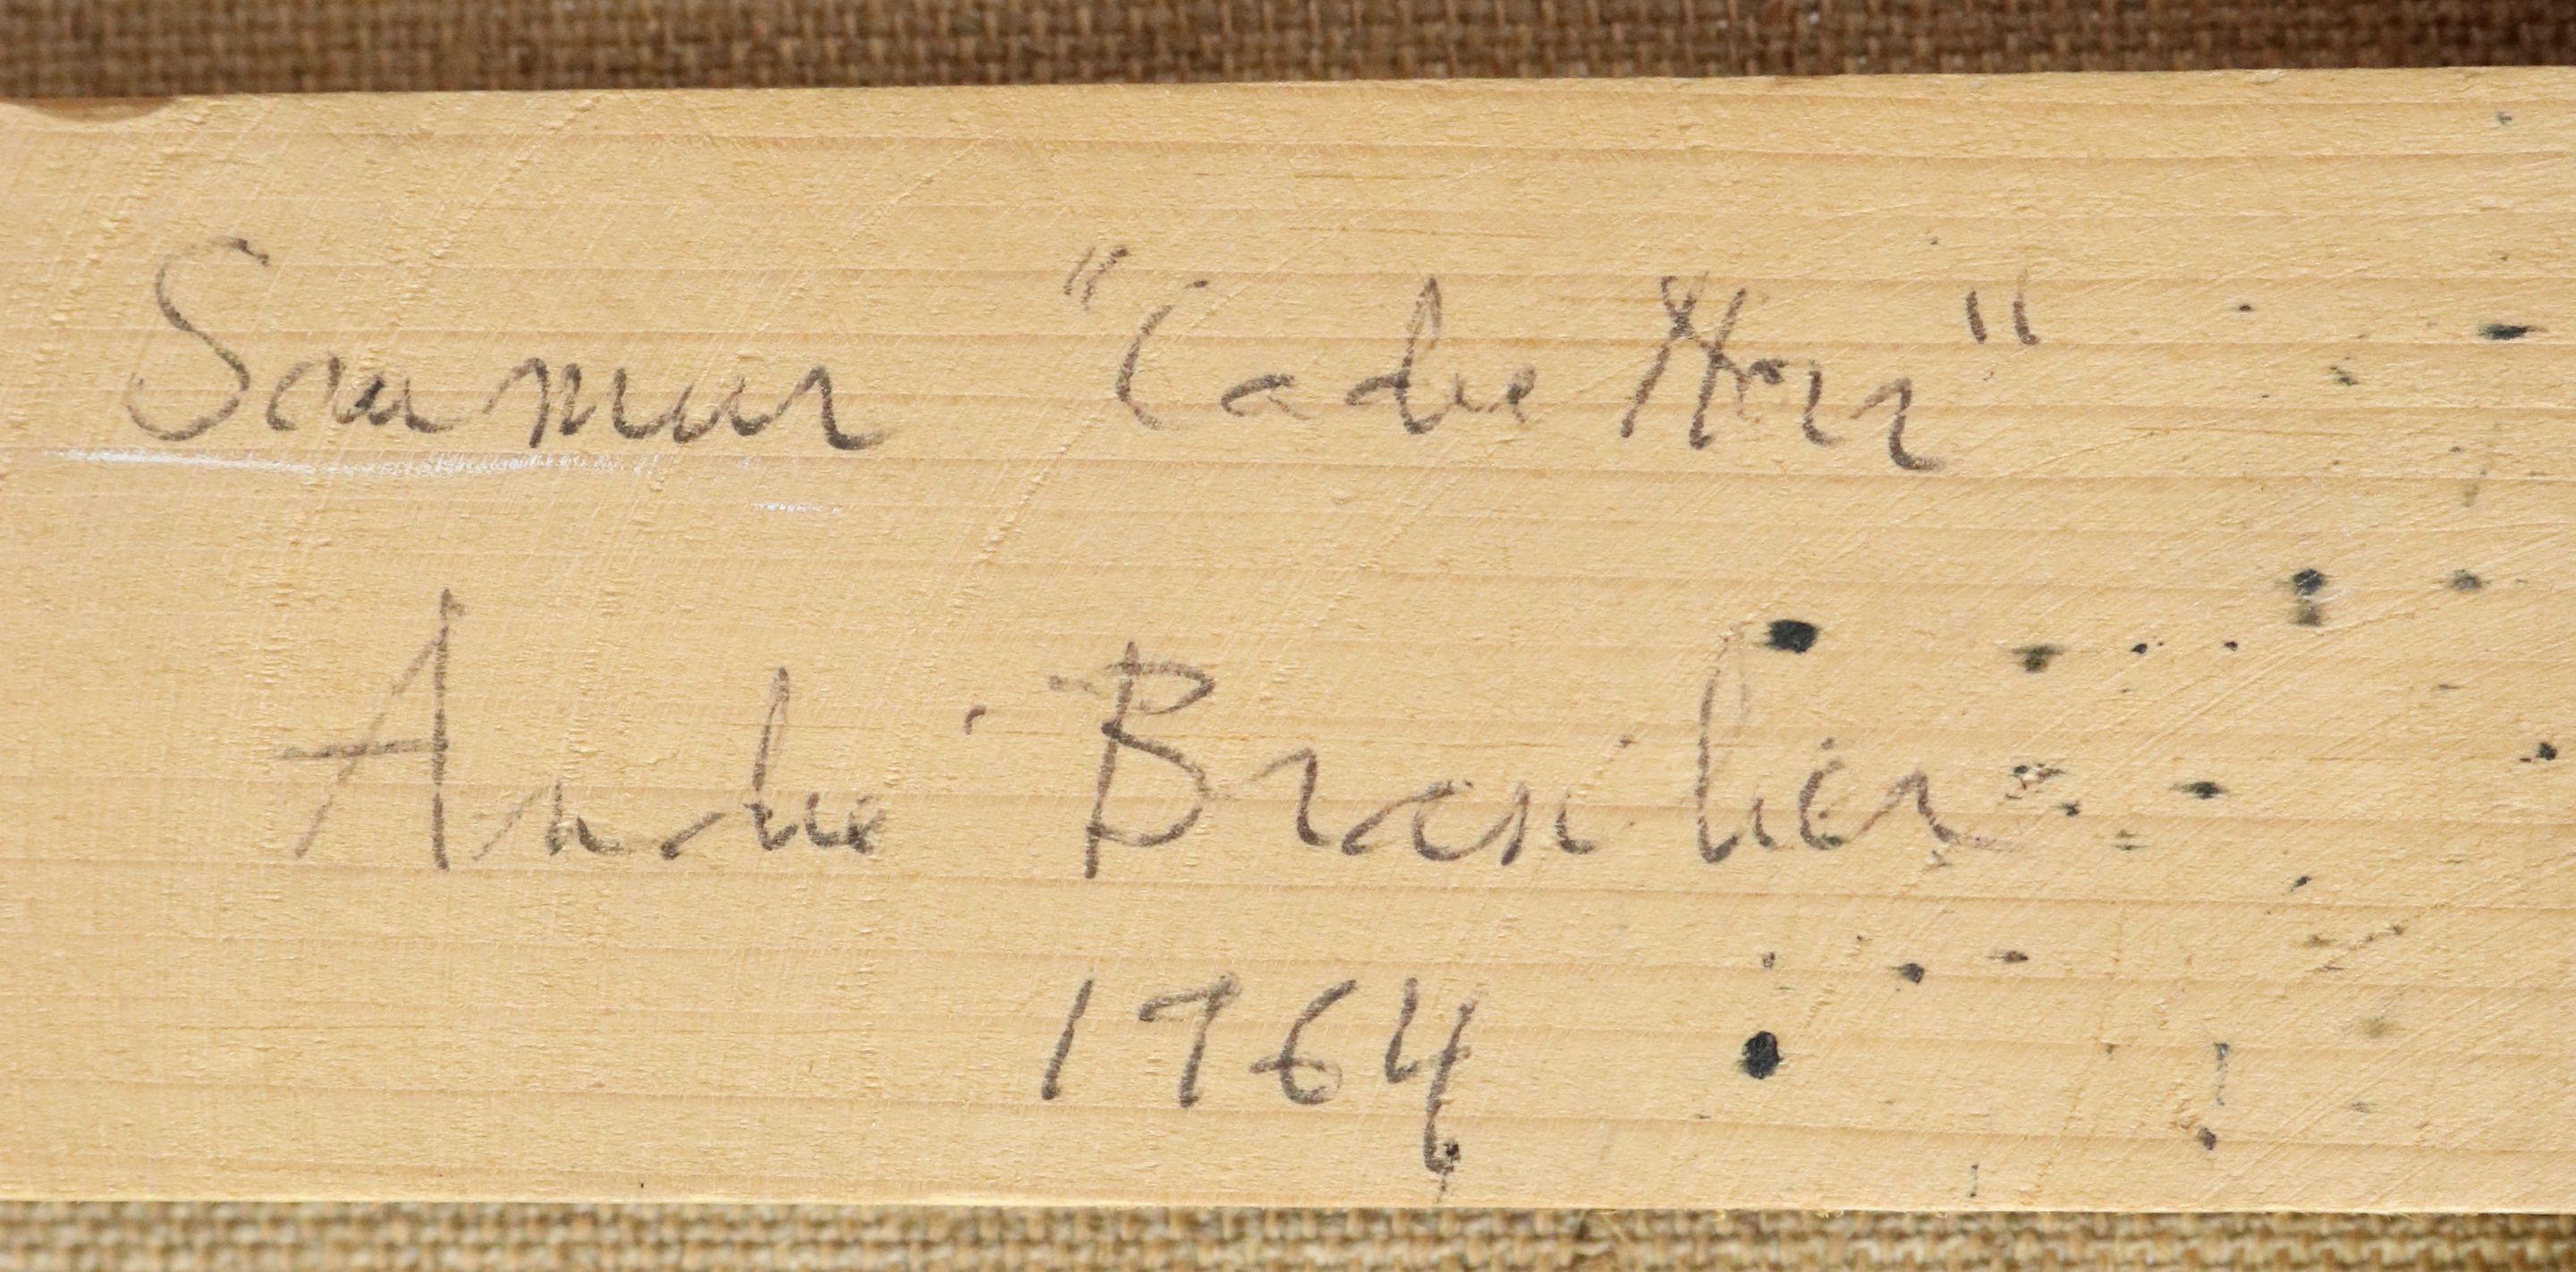 Saumur "Cadre Noir"
André Brasilier
1964